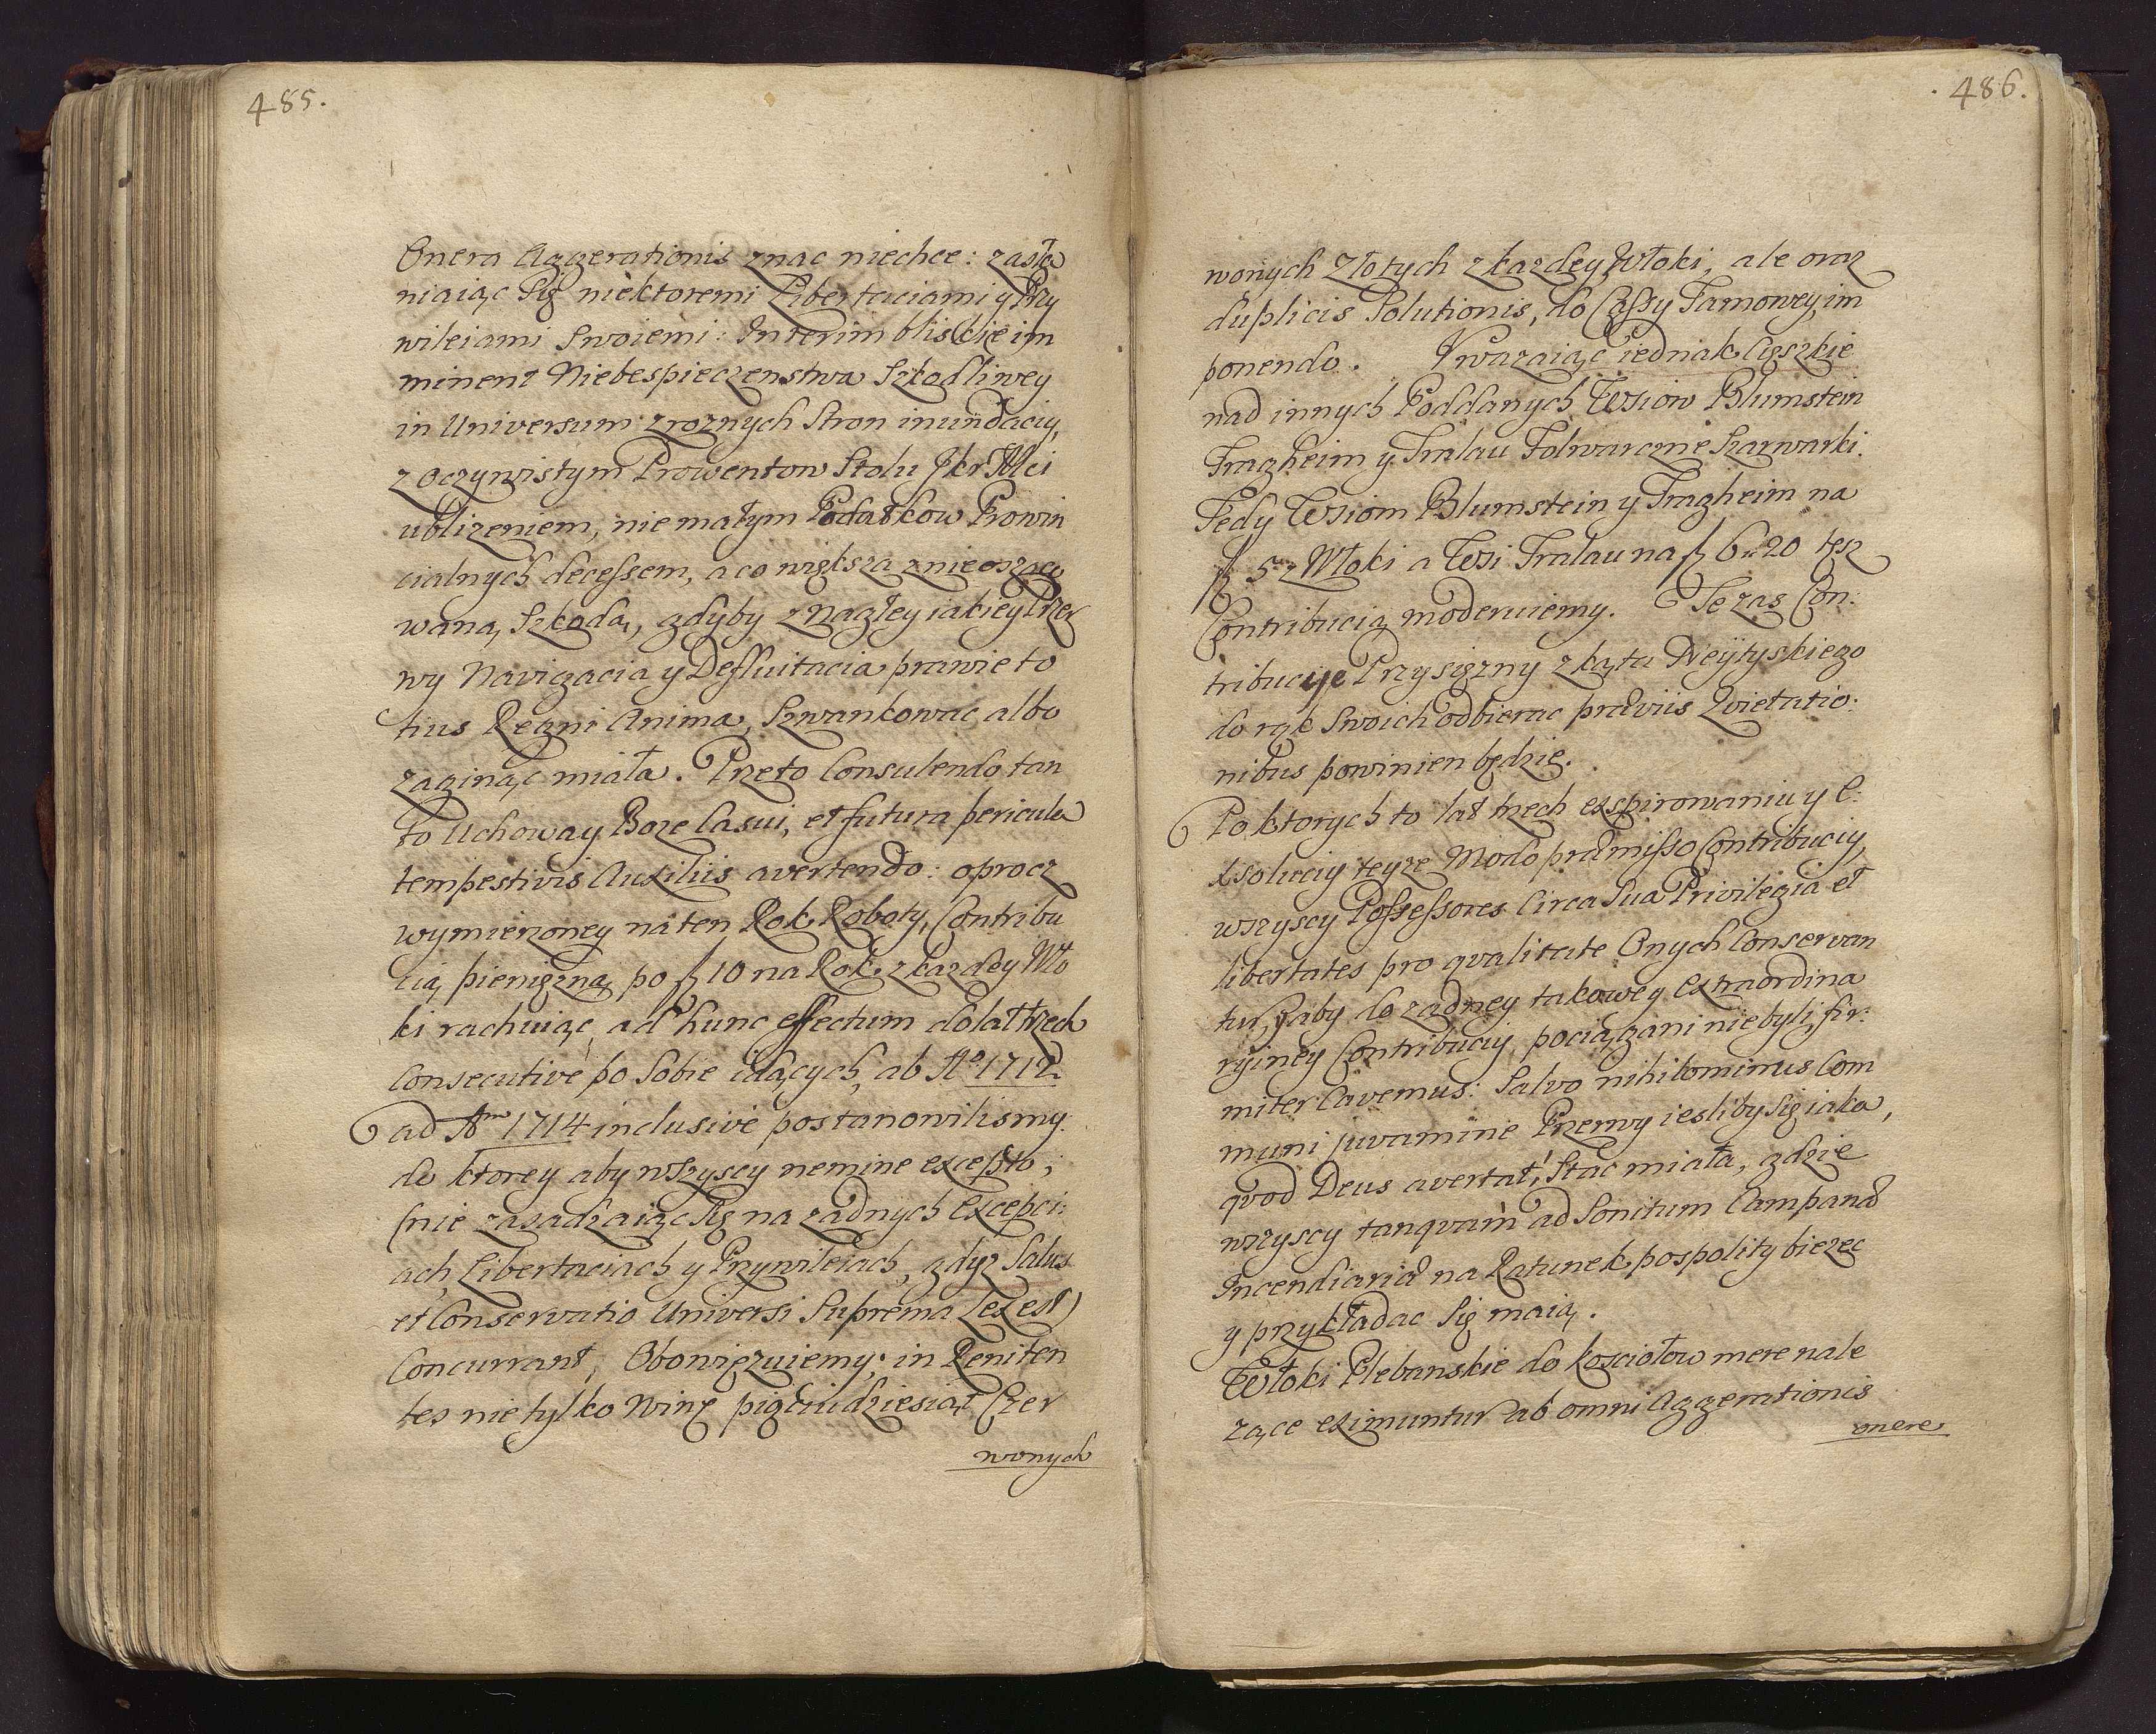 485.
Onera Aggerationis znac niechce: zasła
niaiąc Się niektoremi Libertaciami y Przy
wileiami Swoiemi: Interim bliskie im
minent Niebespieczenstwa Szkodliwey
in Universum z roznych Stron inundaciy,
z oczywistym Prowentow Stołu JKr Mci
ubliżeniem, nie małym Podatkow Prowin
cialnych decessem, a co większa z nieoszaco
waną Szkodą, gdyby z Nagłey iakiey Przer
wy Navigacia y Defluitacia prawie to
tius Regni Anima, Szwankowac albo
zaginąc miała. Przeto Consulendo tan
to Uchoway Boze Casui, et futura pericula
tempestivis Auxiliis avertendo: oprocz
wymierzoney na ten Rok Roboty, Contribu
cią pieniężną po fl 10 na Rok z kazdey Wło
ki rachuiąc, ad hunc effectum do lat trzech
Consecutive po Sobie idących, ab Ao 1712
ad Am 1714 inclusive postanowilismy.
do ktorey aby wszyscy nemine excepto,
(nie zasadzaiąc Się na zadnych Excepci:
ach, Libertaciach y Przywileiach, gdyz Salus
et Conservatio Universi Suprema Lex est)
Concurrant, Obowięzuiemy; in Reniten
tes nie tylko Winę pięciudziesiąt Czer
wonych
486.
wonych Złotych z kazdey Włoki, ale oraz
duplicis Solutionis, do Cassy Tamowey im
ponendo. Uwazaiąc iednak Cięszkie
nad innych Poddanych Wsiow Blumstein
Tragheim y Tralau Folwarczne Szarwarki.
Tedy Wsiom Blumstein y Tragheim na
fl 5 z Włoki a Wsi Tralau na fl 6 u 20 tęsz
Contribucią moderuiemy. Te zas Con:
tribucye Przysięzny z kąta Neytyskiego
do rąk Swoich odbierac praeviis Quietatio:
nibus powinien będzie.
Po ktorych to lat trzech exspirowaniu y E:
xsoluciy teyze Modo praemisso Contribuciy,
wszyscy Possessores Circa Sua Privilegia et
libertates pro qualitate Onych Conservan
tur, zaby do zadney takowey Extraordina
ryiney Contribuciy pociągani nie byli, fir:
miter Cavemus: Salvo nihilominus Com
muni juvamine Przerwy iesliby Się iaka,
quod Deus avertat, Stac miała, gdzie
wszyscy tanquam ad Sonitum Campanae
Incendiariae na Ratunek pospolity biezec
y przykładac Się maią.
Włoki Plebanskie do Kosciołow mere nale
zące eximuntur ab omni Aggerationis
onere